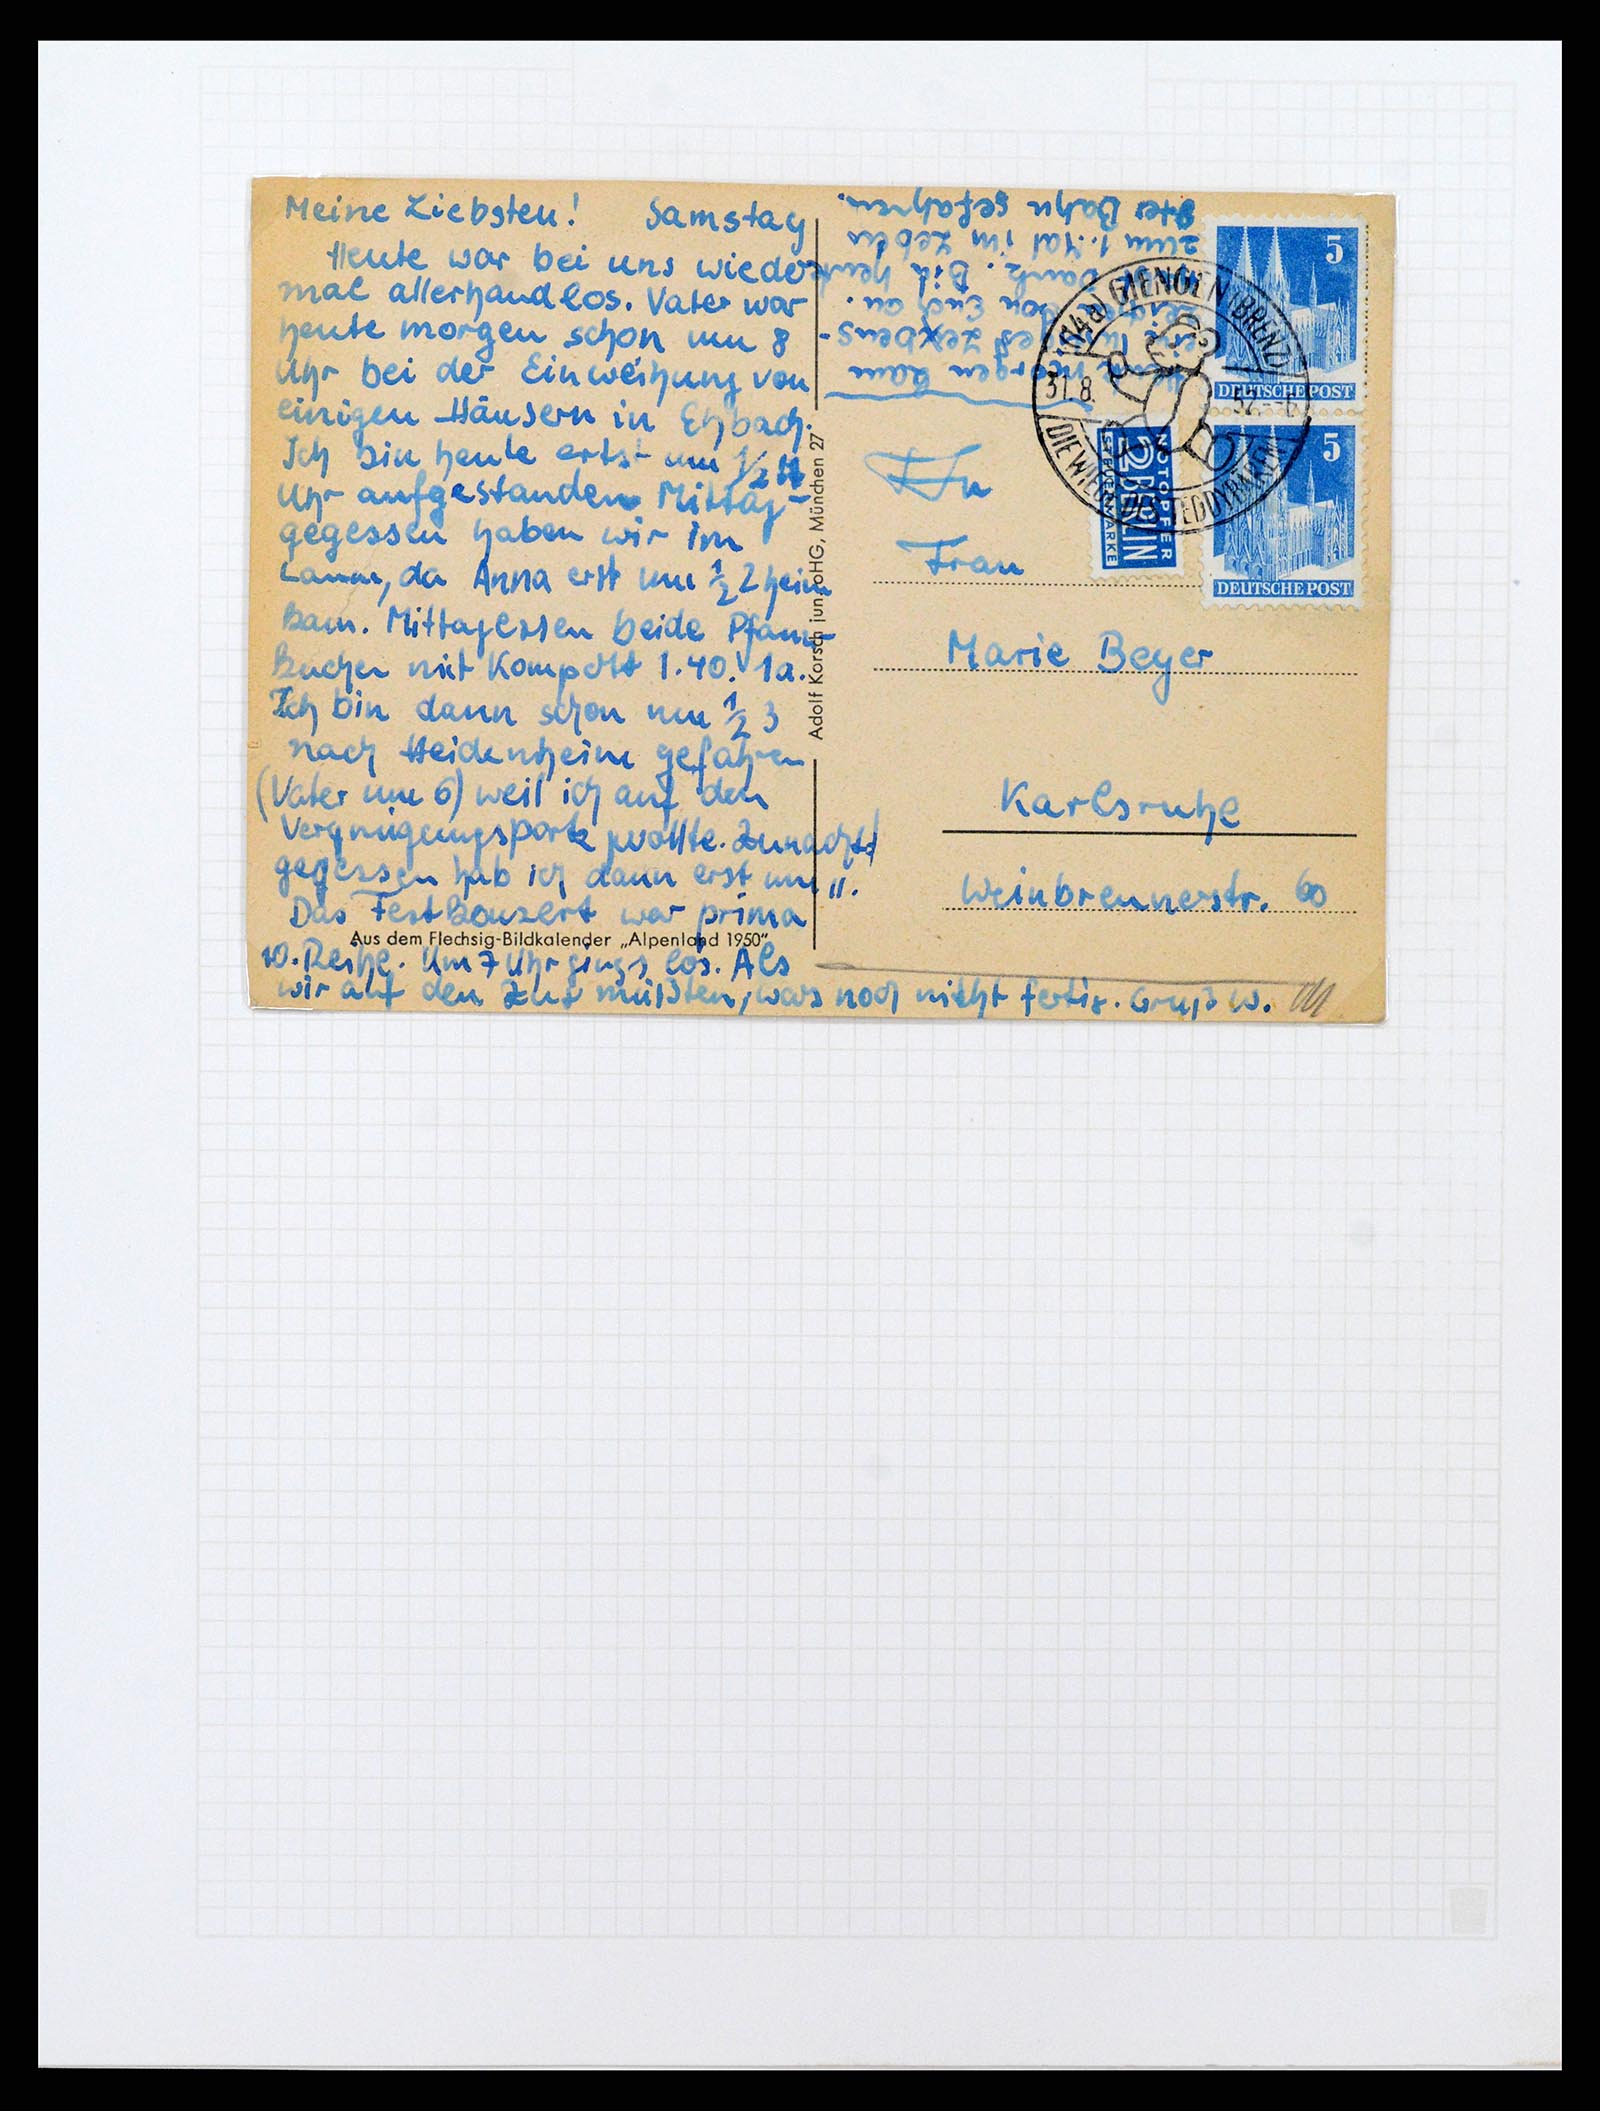 Meine Liebsten! Samstag
Heute war bei uns wieder
mal allerhand los. Vater war
heute morgen schon um 8
Uhr bei der Einweihung von
einigen Häusern in
Ich bin heute erst um 1/2 11
Uhr aufgestanden Mittag-
gegessen haben wir im
Lamm, da Anna erst um 1/2 2 heim
kam. Mittagessen beide Pfann-
kuchen mit Kompott 1.40. 1a.
Ich bin dann schon um 1/2 3
nach Heidenheim gefahren
(Vater um 6) weil ich auf den
Vergnügungspark wollte. Zunächst
gegessen hab ich dann erst um 11.
Das Festkonzert war prima
Aus dem Flechsig-Bildkalender „Alpenland 1950"
10. Reihe. Um 7 Uhr gings los. Als
wir auf den Zug mußten, wars noch nicht fertig. Gruß W.
Adolf Korsch jun. oHG, München 27
Heute morgen kam
des Lebens-
von Euch an.
Dank. Bin heute
zum 1. Mal im Leben
8ter Bahn gefahren.
An
Frau
Marie Beyer
Karlsruhe
Weinbrennerstr. 60
5
DEUTSCHE POST
5
DEUTSCHE POST
NOTOPFER
2 BERLIN
STEUERMARKE
(14a) GIENGEN (BRENZ)
31.8. 52
DIE WIEGE DES TEDDYBÄREN